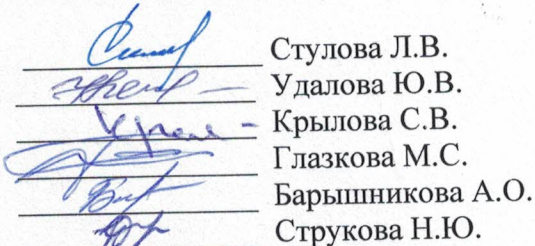 Стулова Л.В.
Удалова Ю.В.
Крылова С.В.
Глазкова М.С.
Барышникова А.О.
Струкова Н.Ю.